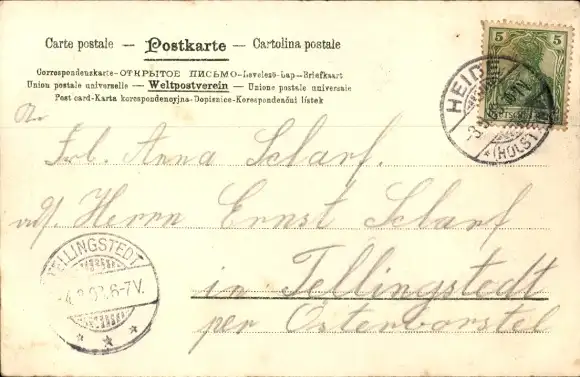 Carte postale — Postkarte — Cartolina postale
Correspondenzkarte - ОТКРЫТОЕ ПИСЬМО - Levelező-Lap - Briefkaart
Union postale universelle — Weltpostverein — Unione postale universale
Post card - Karta korespondencyjna - Dopisnice - Korespondenční lístek
5 5
HEIDE
(HOLST.)
Frl. Anna Scharf.
Herrn Ernst Scharf
in Tellingstedt
per Osterborstel
TELLINGSTEDT
6-7V.